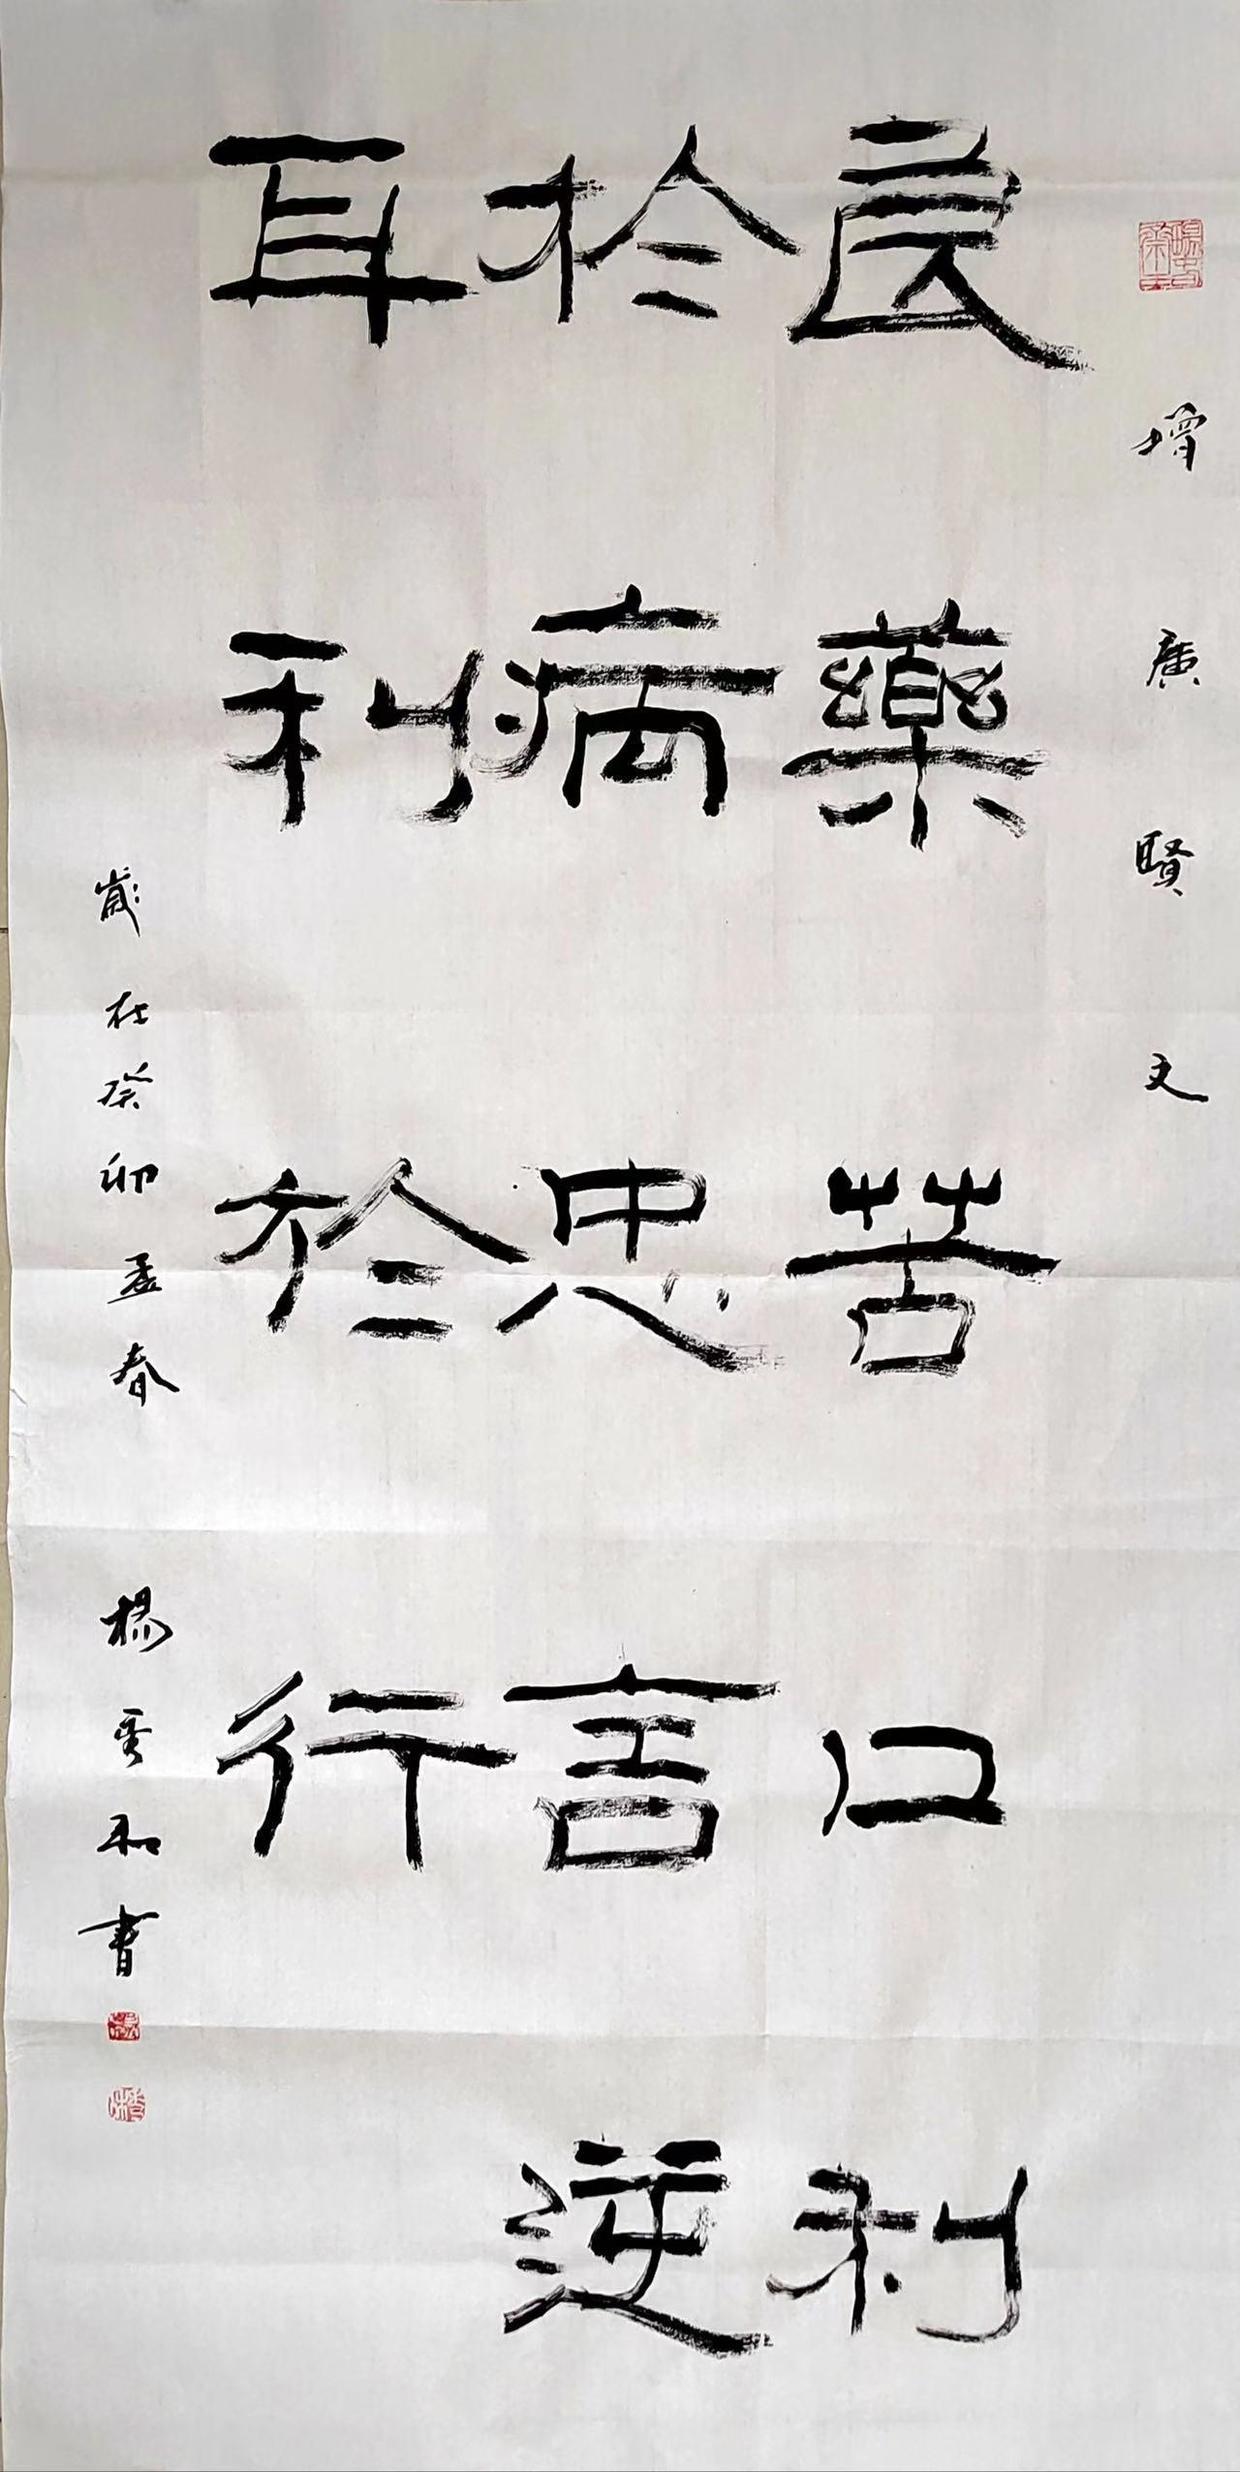 增廣賢文
良藥苦口利
於病忠言逆
耳利於行
歲在癸卯孟春 楊秀和書